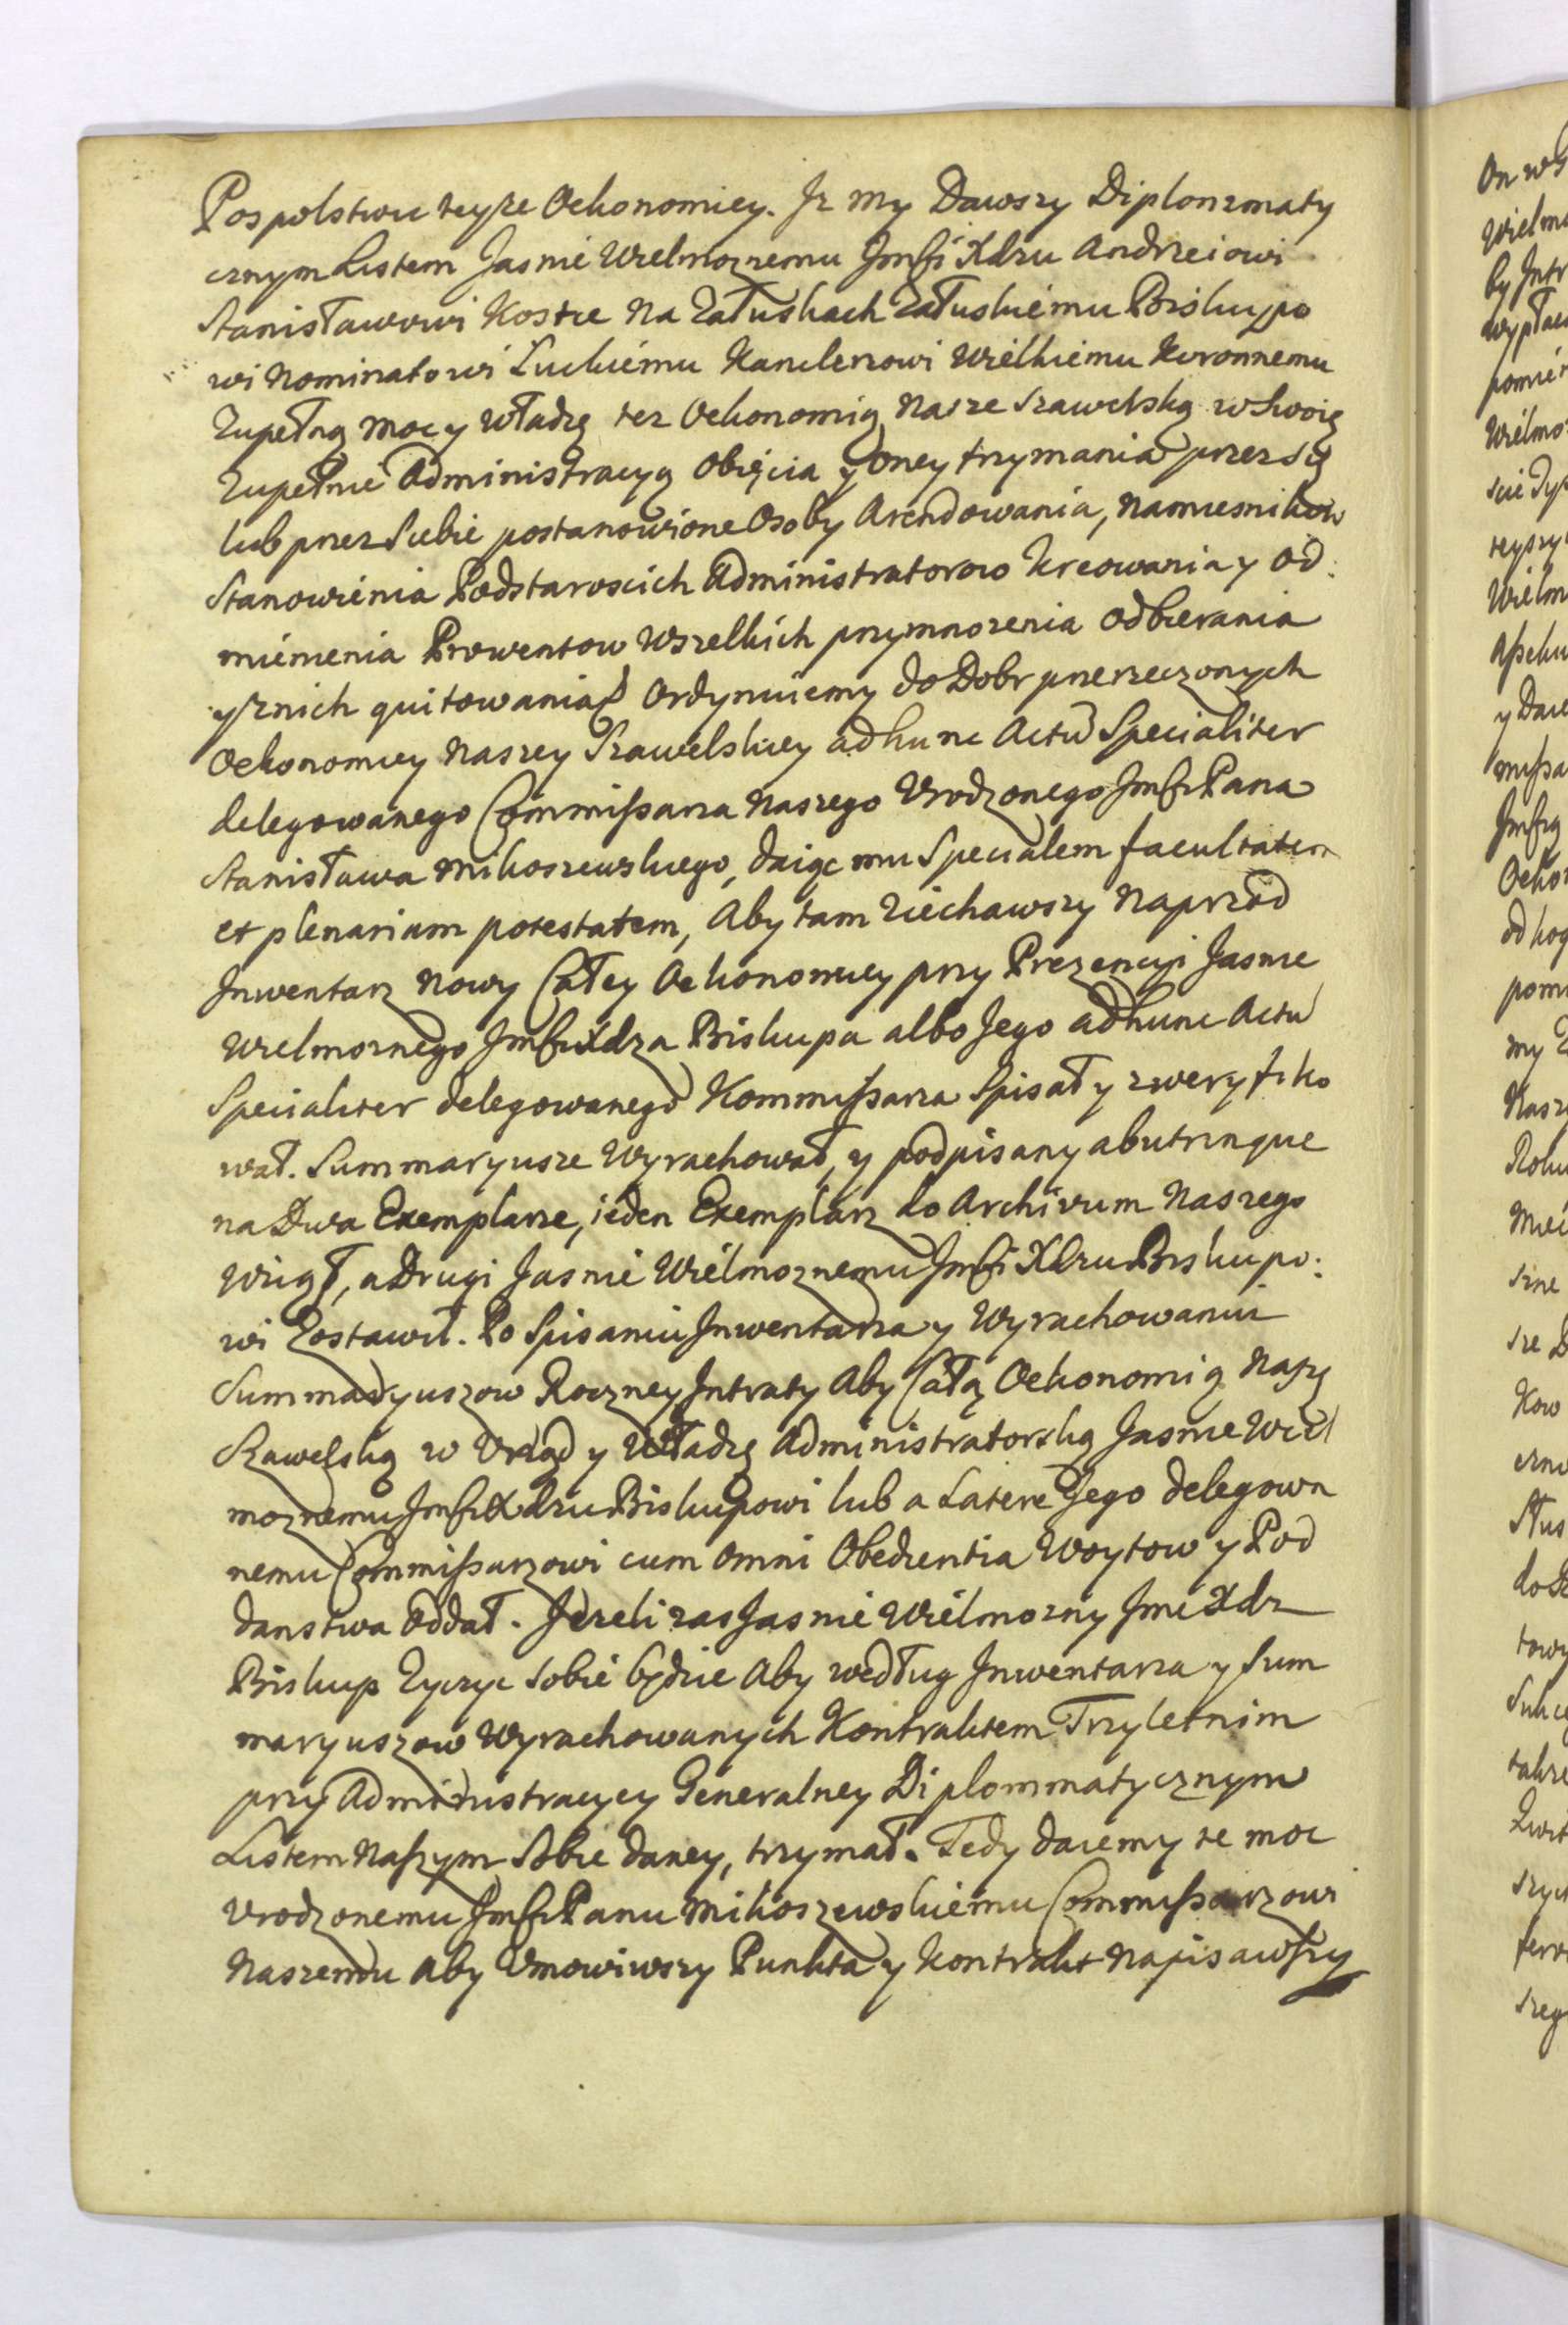 Pospolstwu teyże Oekonomiey. Iz my Dawszy Diplommaty
cznym Listem Jasnie Wielmoznemu Jmści Xdzu Andrzeiowi
Stanisławowi Kostce Na Załuskach Załuskiemu Biskupo
wi Nominatowi Luckiemu Kanclerzowi Wielkiemu Koronnemu
Zupełną moc y Władzę tez Oekonomią Nasze Szawelską w Swoię
Zupełnie Administracyą Obięcia y oney trzymania przez się
lub przez Siebie postanowione Osoby Arendowania, Namiesnikow
Stanowienia Podstaroscich Administratorow Kreowania y od:
mienienia Prowentow Wszelkich przymnozenia Odbierania
y znich quitowania Ordynuiemy do Dobr przerzeczonych
Oekonomiey Naszey Szawelskiey ad hunc Actu Specialiter
delegowanego Commissarza Naszego Urodzonego Jmści Pana
Stanisława Mikoszewskiego, daiąc mu Specialem facultatem
et plenariam potestatem, Aby tam Ziechawszy Naprzod
Inwentarz Nowy Całey Oekonomiey przy Prezencyi Jasnie
Wielmoznego Jmści Xdza Biskupa albo Jego ad hunc Actu
Specialiter delegowanego Kommissarza Spisał y zweryfiko
wał. Summaryusze Wyrachował, y podpisany ab utrinque
na Dwa Exemplarze, ieden Exemplarz do Archivum Naszego
Wziął, a Drugi Jasnie Wielmoznemu Jmści Xdzu Biskupo:
wi Zostawił. Po Spisaniu Inwentarza y Wyrachowaniu
Summaryuszow Roczney Intraty Aby Całą Oekonomią Naszę
Szawelską w Urząd y Władzę Administratorską Jasnie Wiel
moznemu Jmści Xdzu Biskupowi lub a Latere Jego delegowa
nemu Commissarzowi cum omni Obedientia Woytow y Pod
danstwa Oddał. Jezeli zas Jasnie Wielmozny Jmć Xdz
Biskup Zyczyc sobie będzie Aby według Inwentarza y Sum
maryuszow Wyrachowanych Kontraktem Trzyletnim
przy Administracyey Generalney Diplommatycznym
Listem Naszym Sobie daney, trzymał. Tedy daiemy te moc
Urodzonemu Jmści Panu Mikoszewskiemu Commissarzowi
Naszemu Aby Umowiwszy Punkta y Kontrakt Napisawszy